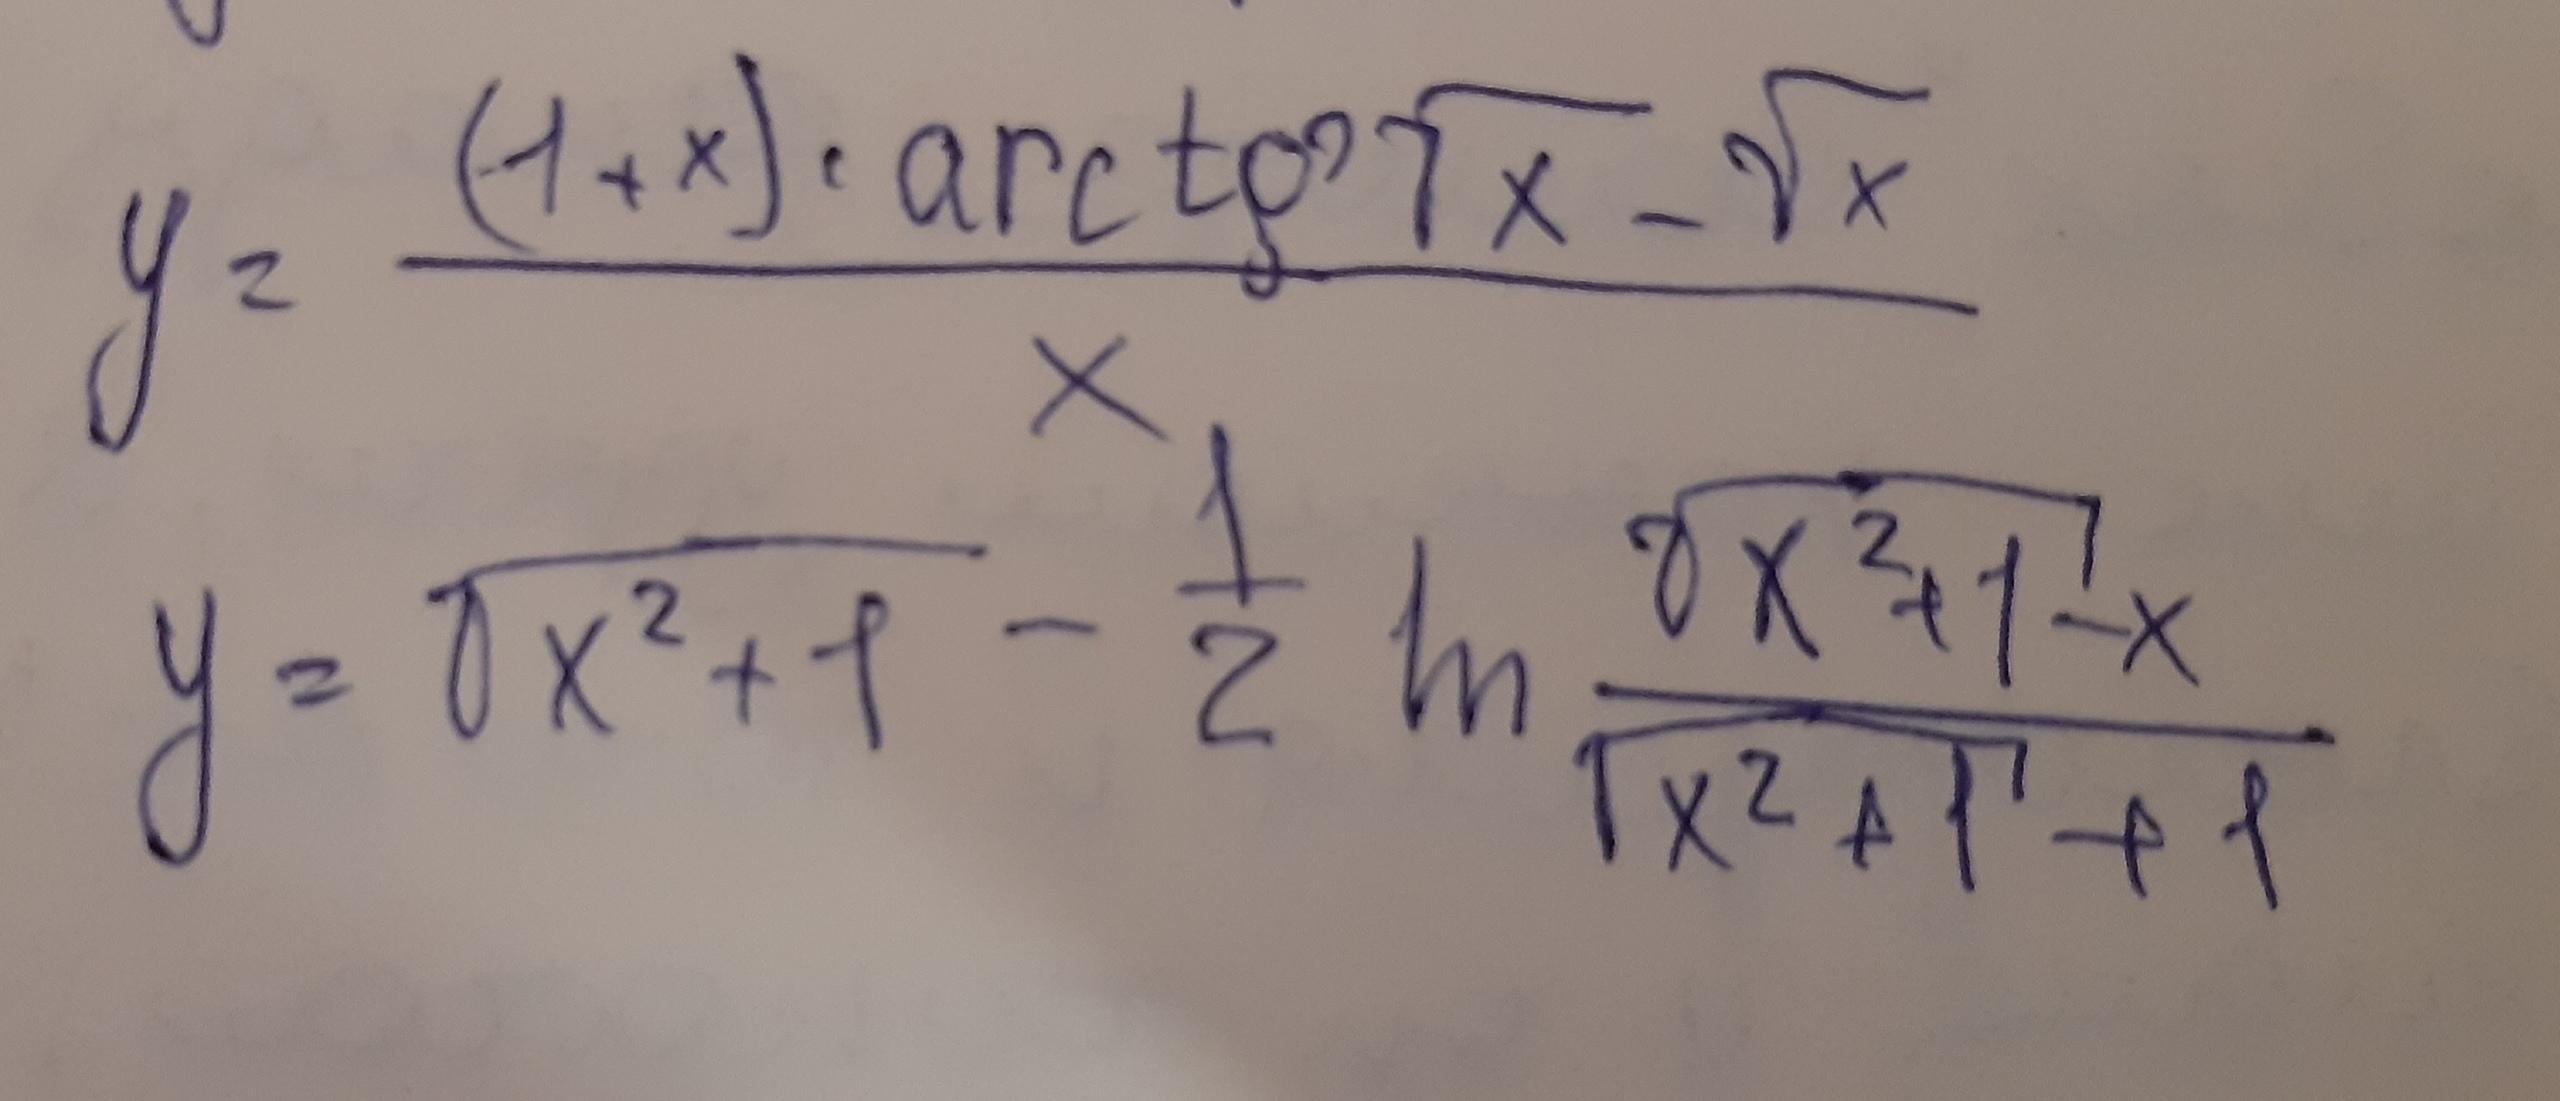 y = ((1+x)·arctg√x - √x)/x
y = √(x²+1) - 1/2 ln (√(x²+1) - x)/(√(x²+1) + 1)